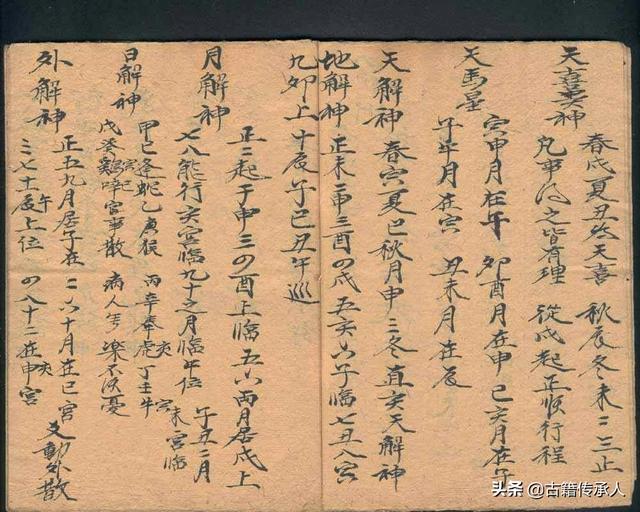 天喜神
春戌夏丑為天喜 秋辰冬未二三止
凡事得之皆有理 從戌起正順行程
天馬星
寅申月在午 卯酉月在申 巳亥月在子
子午月在寅 丑未月在辰
天解神 春寅夏巳秋月申 三冬直亥天解神
地解神 正未二申三酉四戌 五亥六子臨七丑八寅
九卯上十辰午巳丑午巡
月解神
正二起于申三四酉上臨五六兩月居戌上
七八能行亥宮臨九十之月臨午位 午丑二月
未宮臨
日解神
甲巳逢蛇乙庚猴 丙辛奉虎丁壬牛
戊癸鷄啼官事散 病人樂不須憂
外解神
正五九月居子在 二六十月在巳宮 又動外散
三七土辰上位 四八十二在申宮
头条 @古籍传承人